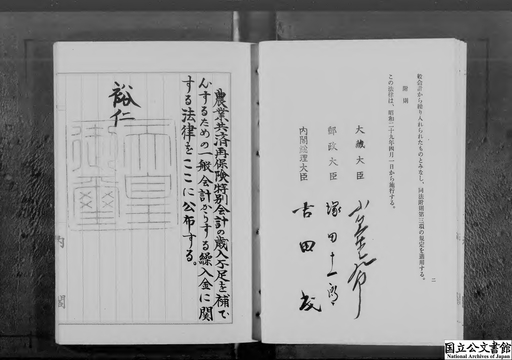 般会計から繰り入れられたものとみなし、同法附則第三項の規定を適用する。
附則
この法律は、昭和二十九年四月一日から施行する。
二
大蔵大臣
郵政大臣 塚田十一郎
内閣総理大臣 吉田茂
農業共済再保険特別会計の歳入不足を補て
んするための一般会計からする繰入金に関
する法律をここに公布する。
裕仁
天皇
御璽
内閣
国立公文書館
National Archives of Japan